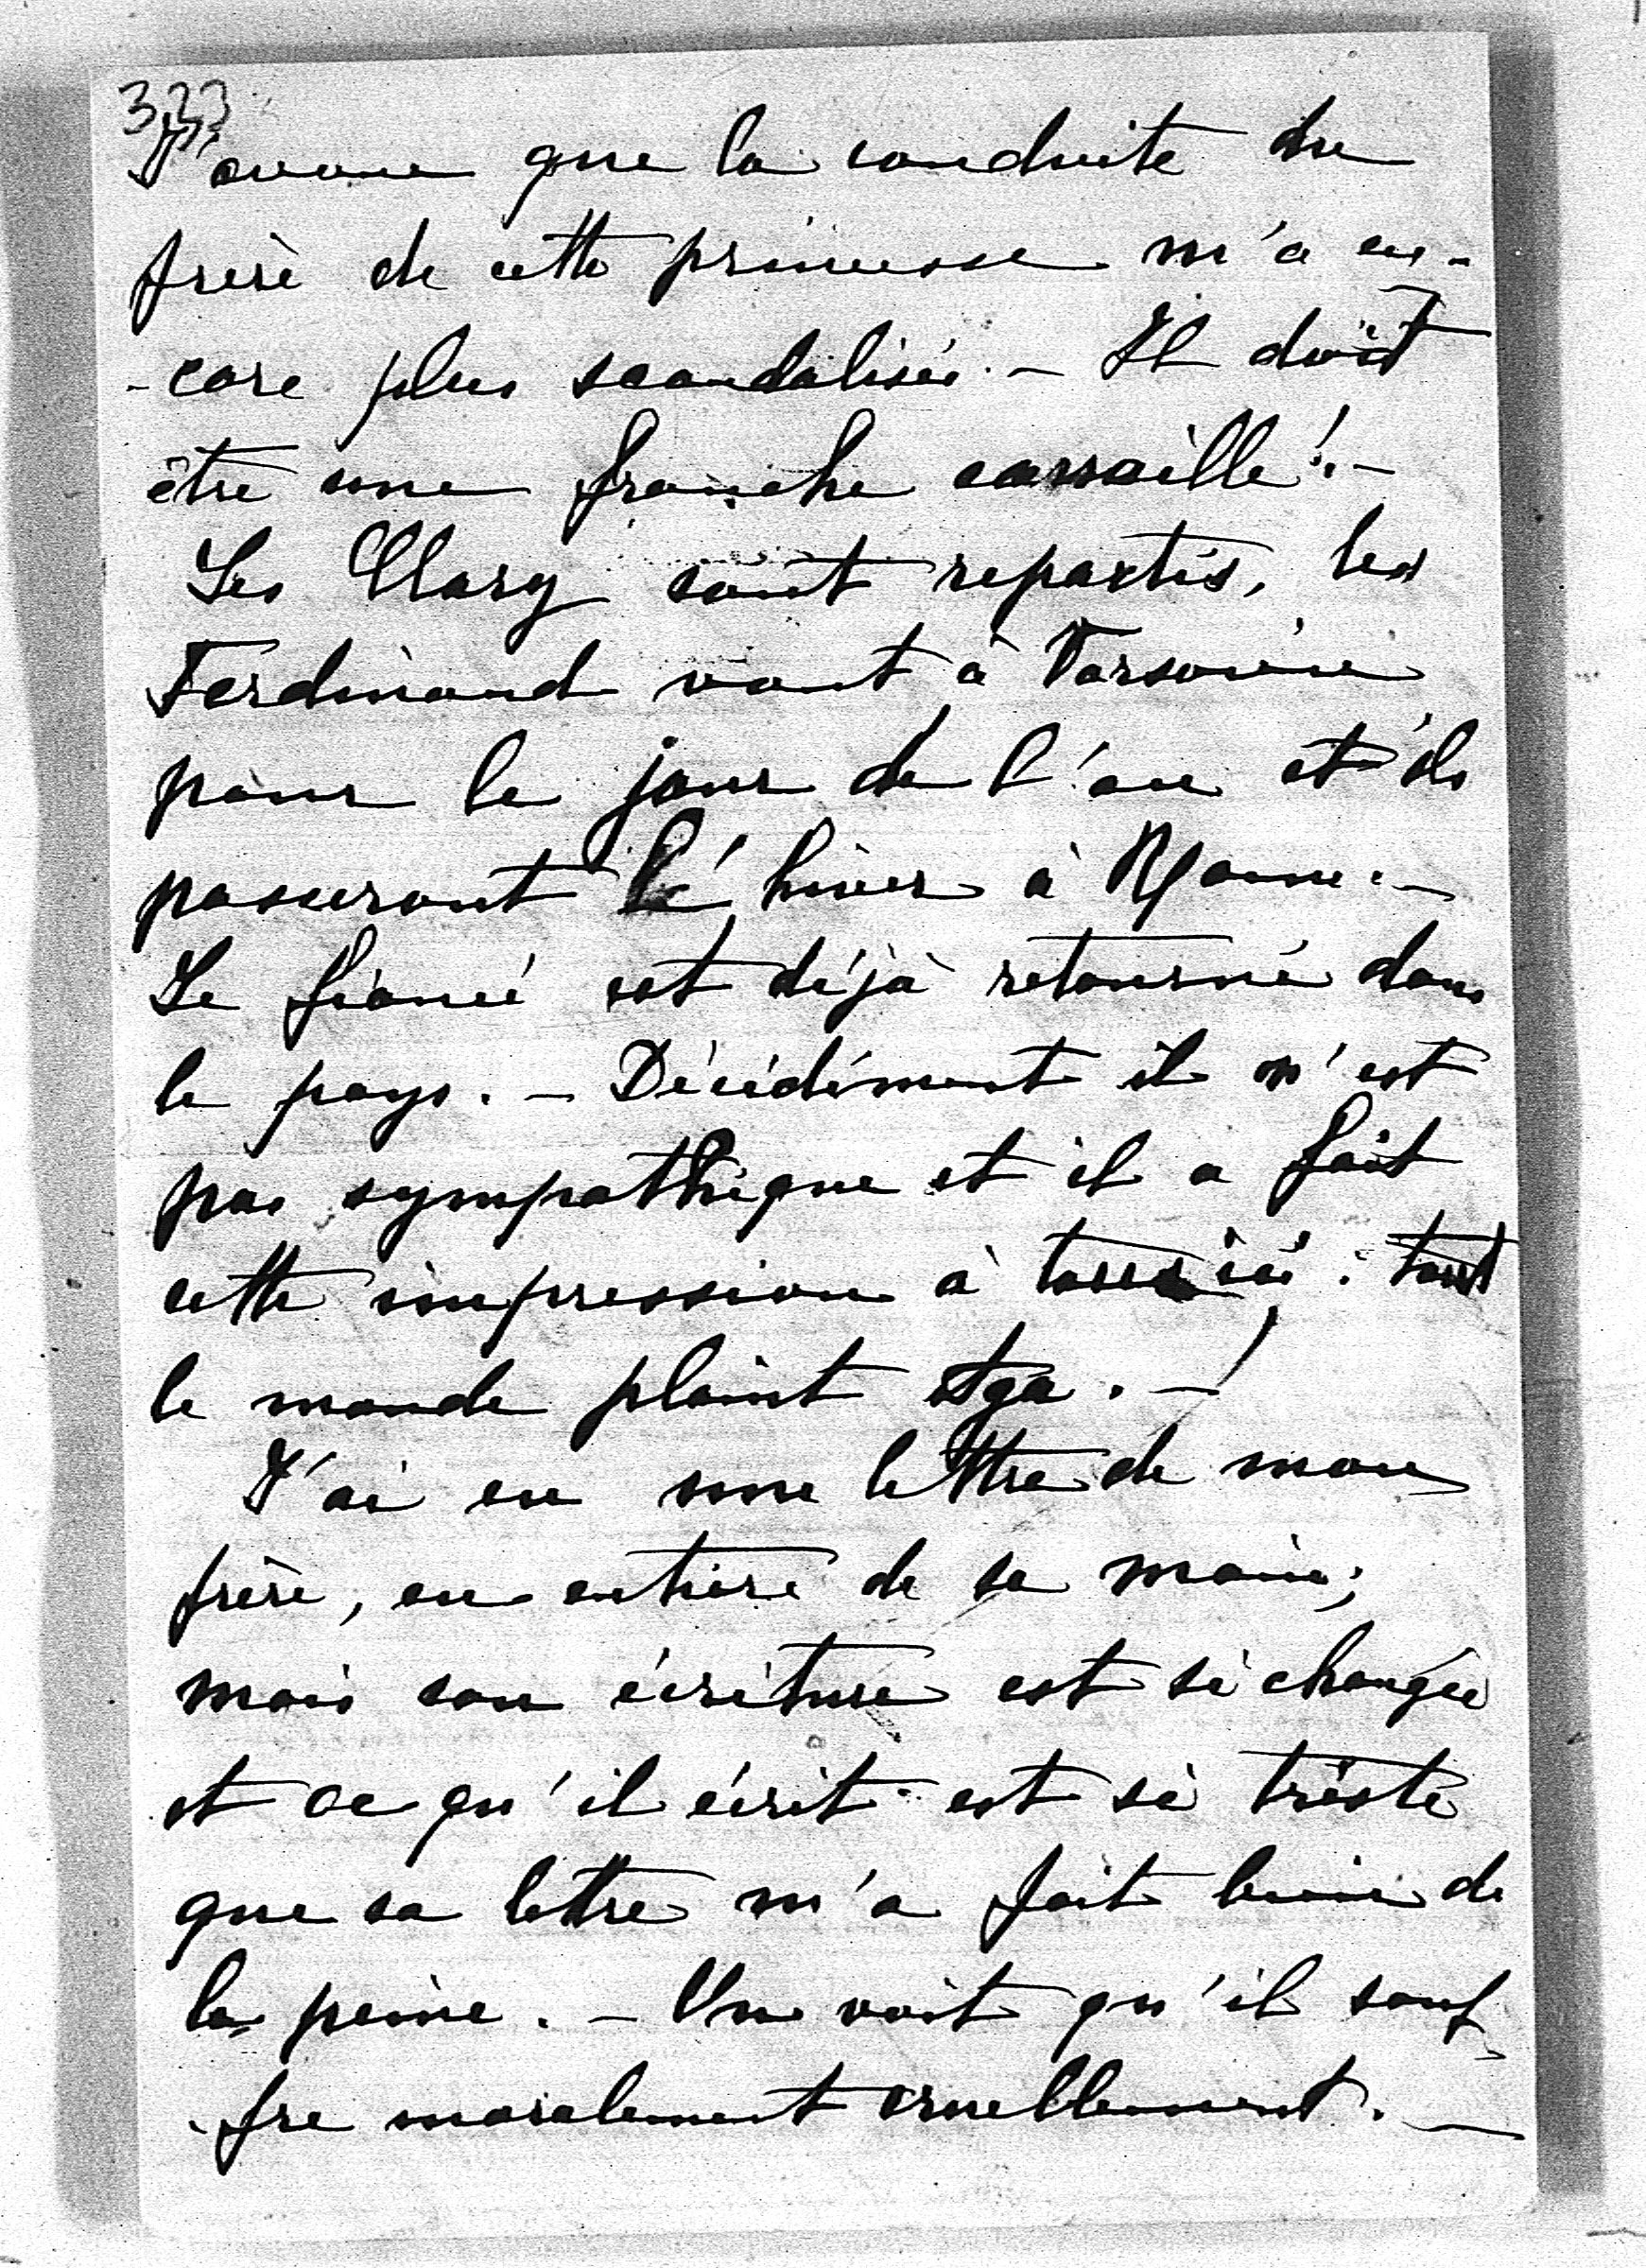 323
J'avoue que la conduite du
frère de cette princesse m'a en-
-core plus scandalisée. - Il doit
être une franche canaille! -
Les Clary sont repartis, les
Ferdinand vont à Varsovie
pour le jour de l'an et ils
passeront l'hiver à Rome. -
Le fiancé est déjà retourné dans
le pays. - Décidément il n'est
pas sympathique et il a fait
cette impression à tous ici : tout
le monde plaint Aga. -
J'ai eu une lettre de mon
frère, en entière de sa main;
mais son écriture est si changée
et ce qu'il écrit est si triste
que sa lettre m'a fait bien de
la peine. - On voit qu'il souf-
-fre moralement cruellement. -